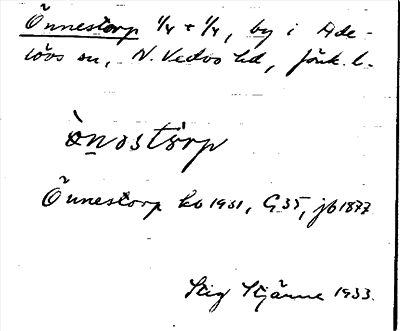 Önnestorp 1/4 + 1/4, by i Ade-
lövs sn, N. Vedbo hd, Jönk. l.
ònostòrp
Önnestorp kb 1931, G 35, jb 1877
Stig Stjärne 1933.